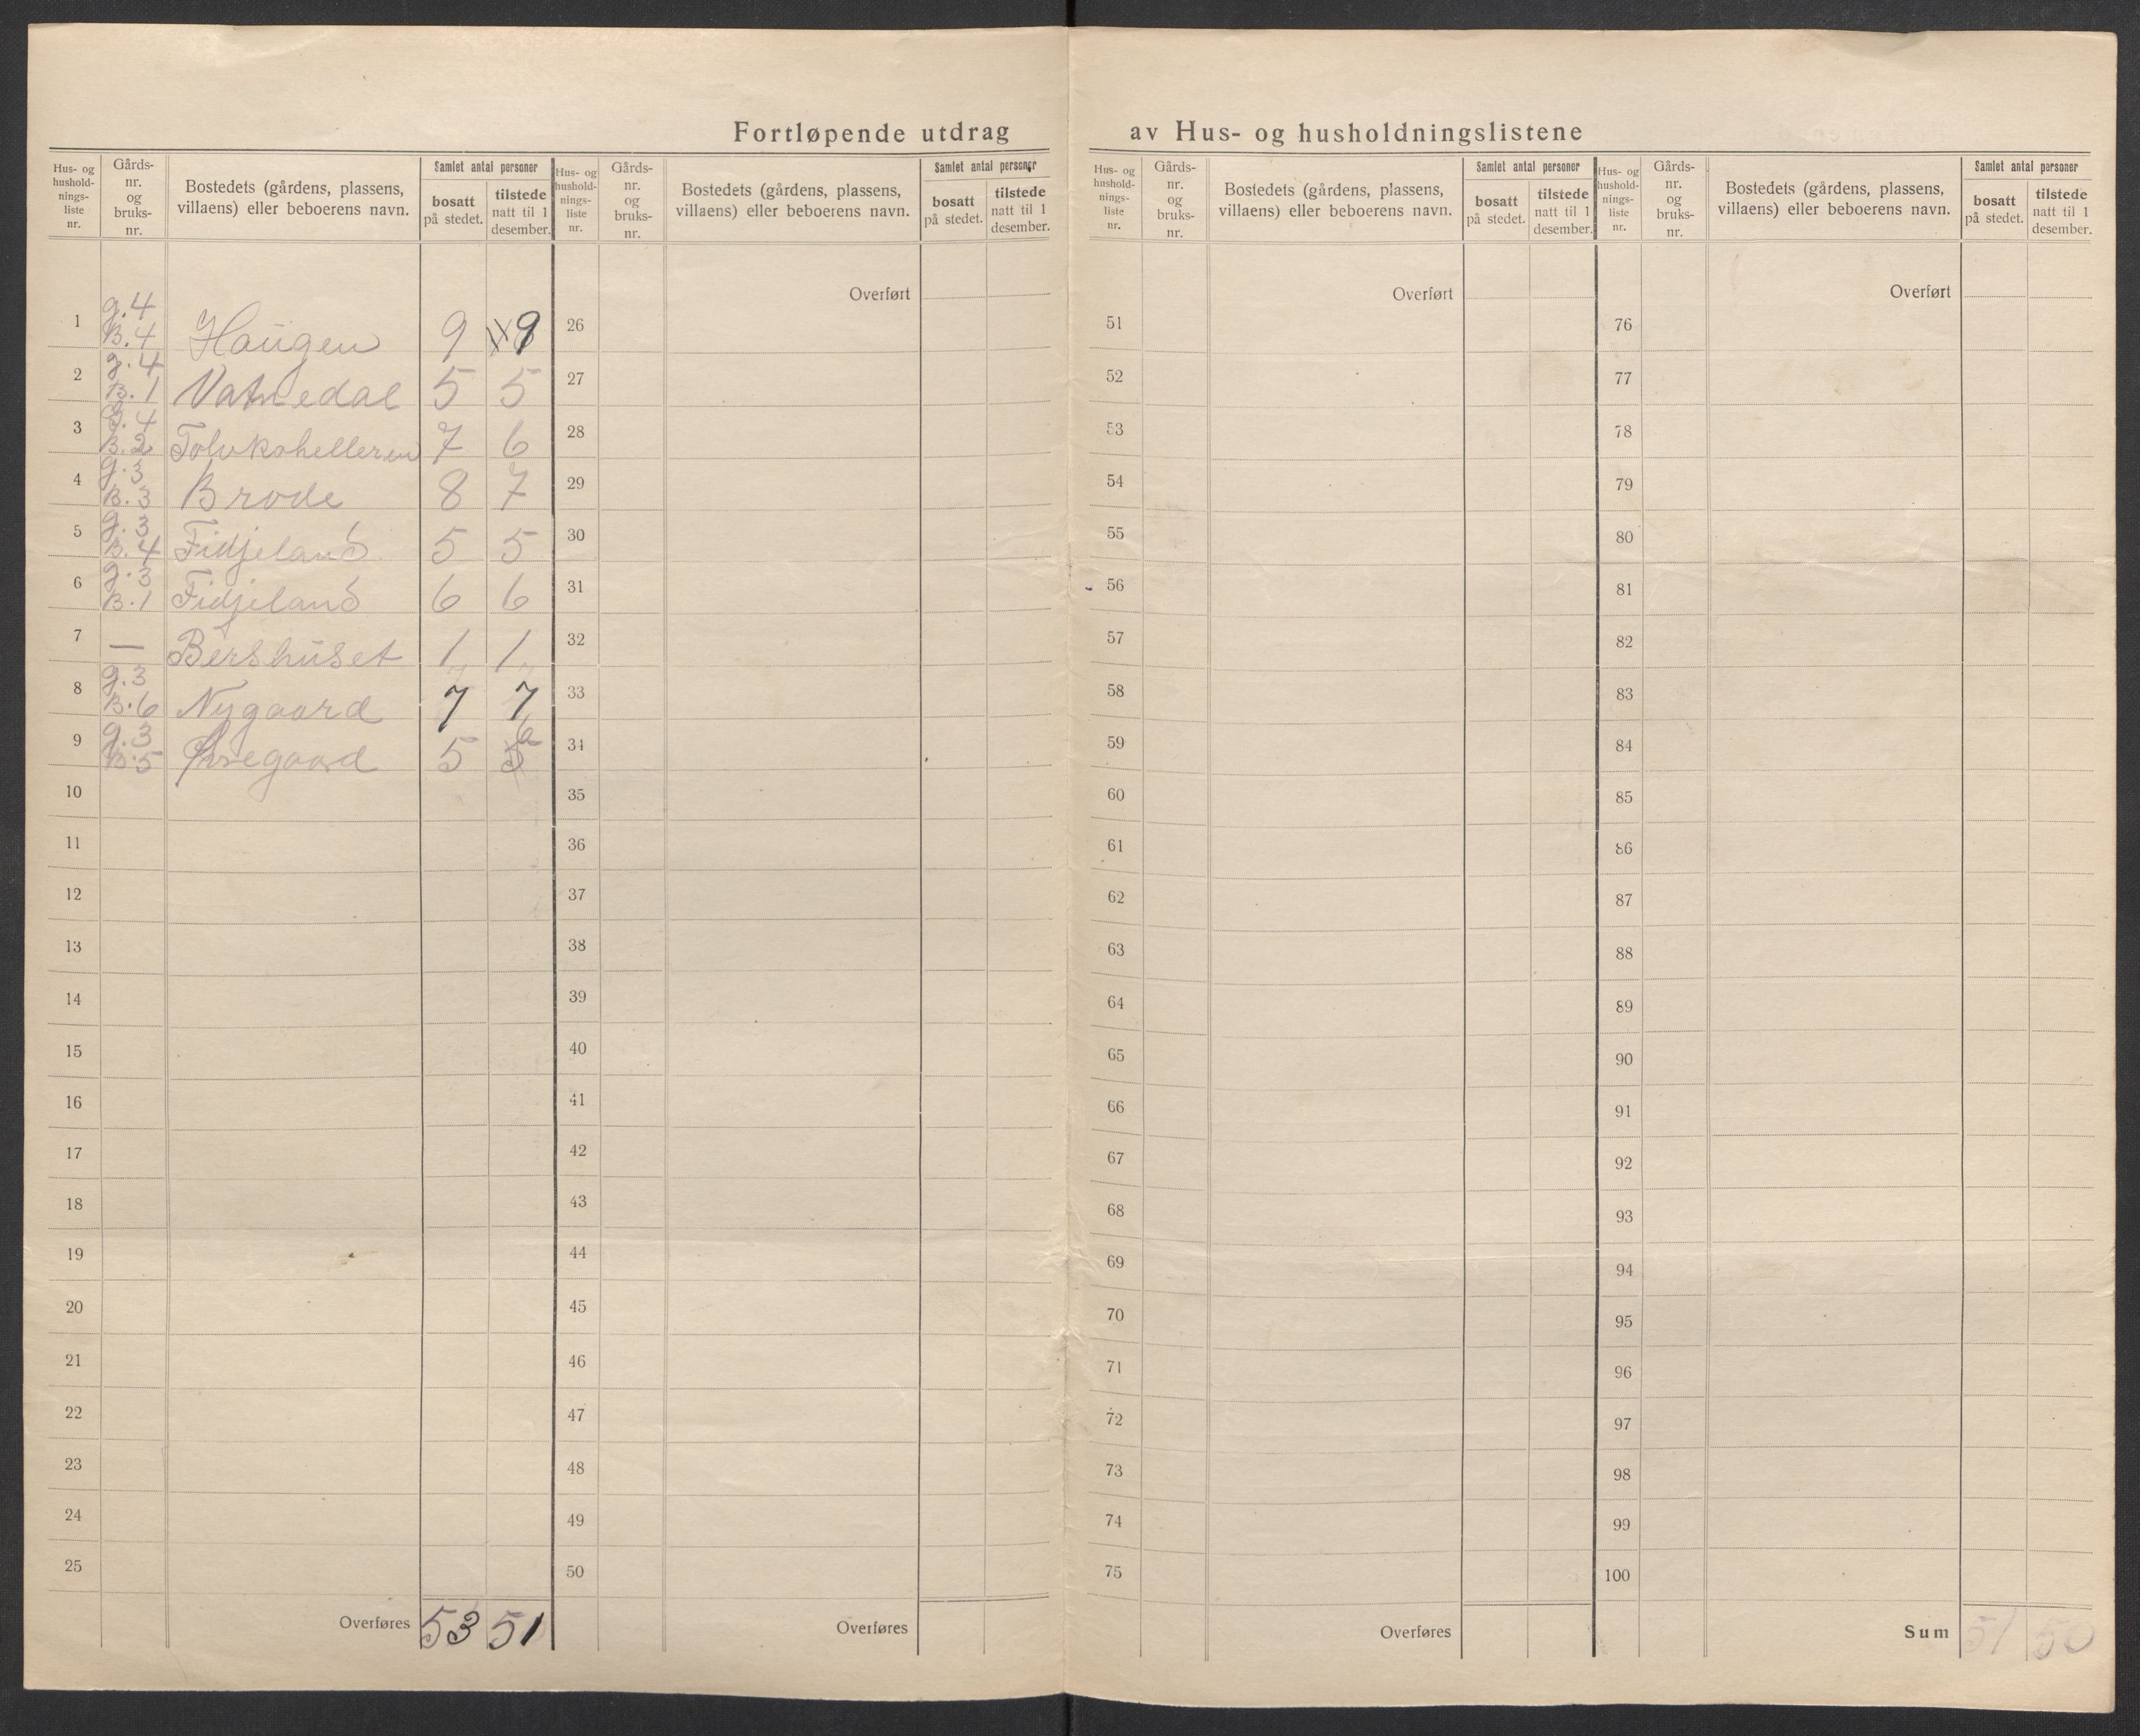 Fortløpende utdrag av Hus- og husholdningslistene
Hus- og hushold-nings-liste nr. Gårds-nr. og bruks-nr. Bostedets (gårdens, plassens, villaens) eller beboerens navn. Samlet antal personer bosatt på stedet. tilstede natt til 1 desember.
Hus- og hushold-nings-liste nr. Gårds-nr. og bruks-nr. Bostedets (gårdens, plassens, villaens) eller beboerens navn. Samlet antal personer bosatt på stedet. tilstede natt til 1 desember.
Hus- og hushold-nings-liste nr. Gårds-nr. og bruks-nr. Bostedets (gårdens, plassens, villaens) eller beboerens navn. Samlet antal personer bosatt på stedet. tilstede natt til 1 desember.
Hus- og hushold-nings-liste nr. Gårds-nr. og bruks-nr. Bostedets (gårdens, plassens, villaens) eller beboerens navn. Samlet antal personer bosatt på stedet. tilstede natt til 1 desember.
1 g.4 B.4 Haugen 9 9
2 g.4 B.1 Vatnedal 5 5
3 g.4 B.2 7 6
4 g.3 B.3 Brode 8 7
5 g.3 B.4 Fidjeland 5 5
6 g.3 B.1 Fidjeland 6 6
7 — 1 1
8 g.3 B.6 Nygaard 7 7
9 g.3 B.5 5 6
10
11
12
13
14
15
16
17
18
19
20
21
22
23
24
25
Overføres 53 51
Overført
26
27
28
29
30
31
32
33
34
35
36
37
38
39
40
41
42
43
44
45
46
47
48
49
50
Overføres
Overført
51
52
53
54
55
56
57
58
59
60
61
62
63
64
65
66
67
68
69
70
71
72
73
74
75
Overføres
Overført
76
77
78
79
80
81
82
83
84
85
86
87
88
89
90
91
92
93
94
95
96
97
98
99
100
Sum 51 50